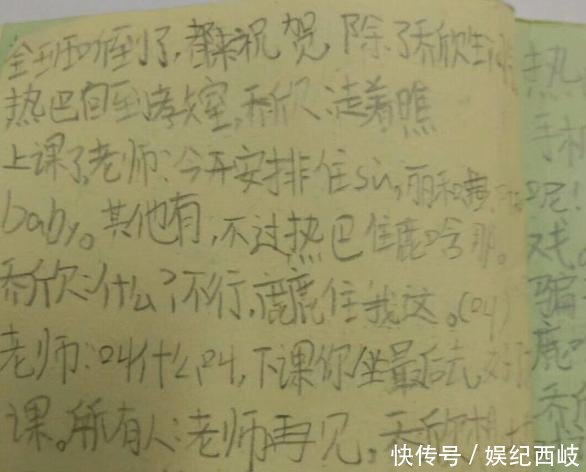 全班听到了,都来祝贺 除了乔欣生
热巴回到教室,乔欣:走着瞧
上课了老师:今天安排住sù,丽和
baby。其他有,不过热巴住鹿哈那。
乔欣:什么?不行,鹿鹿住我这。(叫)
老师:叫什么叫,下课你坐最后去,
课。所有人:老师再见,乔欣
热
手机
呢!
戏。
骗
鹿
乔
快传号 / 娱纪西岐